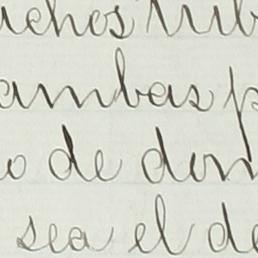 uchos
ambas p
o de don
sea el de